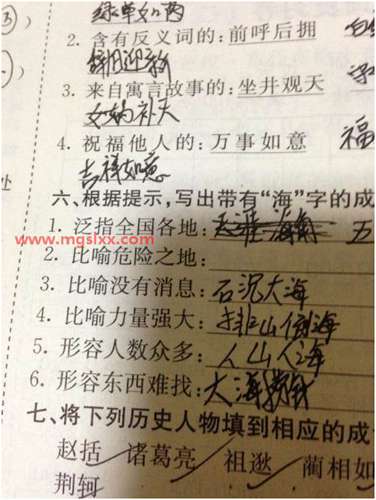 绿草如茵
2. 含有反义词的：前呼后拥
辞旧迎新
3. 来自寓言故事的：坐井观天
女娲补天
4. 祝福他人的：万事如意 福
吉祥如意
六、根据提示，写出带有“海”字的成
1. 泛指全国各地：天涯海角 五
www.mgslxx.com
2. 比喻危险之地：
3. 比喻没有消息：石沉大海
4. 比喻力量强大：排山倒海
5. 形容人数众多：人山人海
6. 形容东西难找：大海捞针
七、将下列历史人物填到相应的成
赵括 诸葛亮 祖逖 蔺相如
荆轲